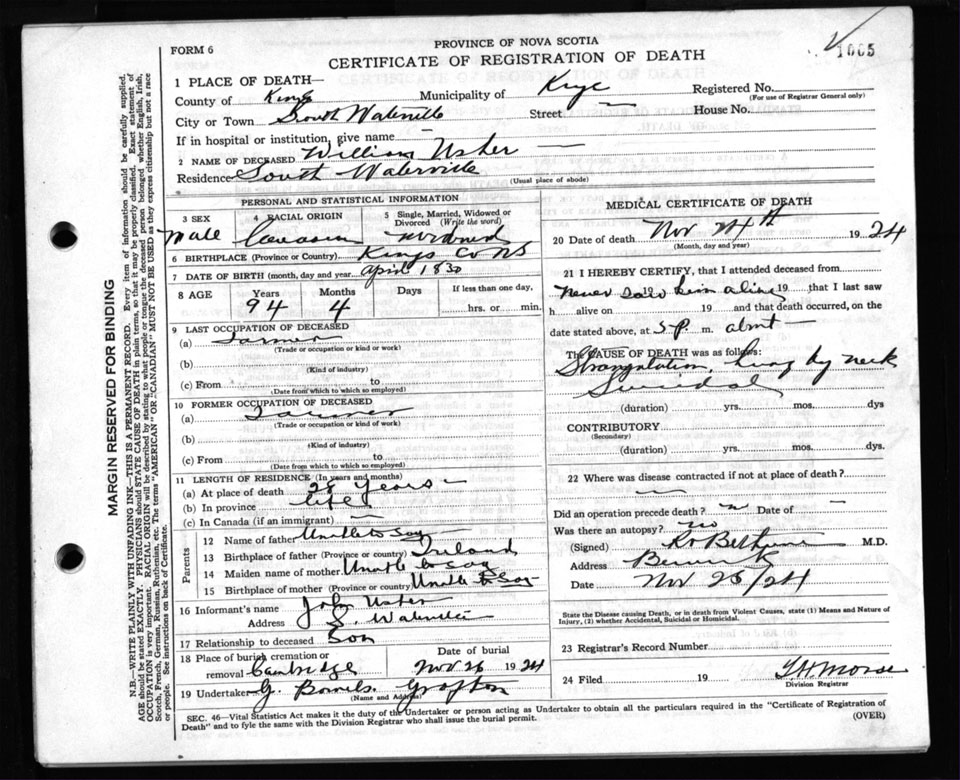 1005
PROVINCE OF NOVA SCOTIA
FORM 6
CERTIFICATE OF REGISTRATION OF DEATH
1 PLACE OF DEATH—
County of Kings Municipality of Registered No.
(For use of Registrar General only)
City or Town South Waterville Street — House No.
If in hospital or institution, give name —
2 NAME OF DECEASED William Usher —
Residence South Waterville
(Usual place of abode)
PERSONAL AND STATISTICAL INFORMATION
3 SEX 4 RACIAL ORIGIN 5 Single, Married, Widowed or Divorced (Write the word)
Male widowed
6 BIRTHPLACE (Province or Country) Kings Co NS
7 DATE OF BIRTH (month, day and year) April 1830
8 AGE Years Months Days If less than one day,
94 4 hrs. or min.
9 LAST OCCUPATION OF DECEASED
(a) Farmer
(Trade or occupation or kind or work)
(b)
(Kind of industry)
(c) From to
(Date from which to which so employed)
10 FORMER OCCUPATION OF DECEASED
(a) Farmer
(Trade or occupation or kind of work)
(b)
(Kind of industry)
(c) From to
(Date from which to which so employed)
11 LENGTH OF RESIDENCE (In years and months)
(a) At place of death 28 years —
(b) In province life
(c) In Canada (if an immigrant) —
Parents
12 Name of father Unable to Say
13 Birthplace of father (Province or country) Ireland
14 Maiden name of mother Unable to say
15 Birthplace of mother (Province or country) Unable to Say
16 Informant's name John Usher
Address S. Waterville
17 Relationship to deceased Son
18 Place of burial, cremation or removal Cambridge Date of burial Nov 26 1924
19 Undertaker G. Grafton
(Name and Address)
MEDICAL CERTIFICATE OF DEATH
20 Date of death Nov 24th 1924
(Month, day and year)
21 I HEREBY CERTIFY, that I attended deceased from
never saw him alive 19 that I last saw
h alive on 19 and that death occurred, on the
date stated above, at 5 P. m. abut —
The CAUSE OF DEATH was as follows:
Strangulation, hung by neck
Suicidal
(duration) yrs. mos. dys
CONTRIBUTORY
(Secondary)
(duration) yrs. mos. dys.
22 Where was disease contracted if not at place of death?
—
Did an operation precede death? Date of
Was there an autopsy? no
(Signed) Bethune M.D.
Address
Date Nov 25/24
State the Disease causing Death, or in death from Violent Causes, state (1) Means and Nature of
Injury, (2) whether Accidental, Suicidal or Homicidal.
23 Registrar's Record Number
24 Filed 19 Morse
Division Registrar
SEC. 46—Vital Statistics Act makes it the duty of the Undertaker or person acting as Undertaker to obtain all the particulars required in the "Certificate of Registration of
Death" and to fyle the same with the Division Registrar who shall issue the burial permit.
(OVER)
MARGIN RESERVED FOR BINDING
N.B.—WRITE PLAINLY WITH UNFADING INK—THIS IS A PERMANENT RECORD. Every item of information should be carefully supplied.
AGE should be stated EXACTLY. PHYSICIANS should STATE CAUSE OF DEATH in plain terms, so that it may be properly classified. Exact statement of
OCCUPATION is very important. RACIAL ORIGIN will be described by stating to what people or tongue the deceased person belonged whether English, Irish,
Scotch, French, German, Russian, Ruthenian, etc. The terms "AMERICAN" OR "CANADIAN" MUST NOT BE USED as they express citizenship but not a race
or people. See instructions on back of Certificate.